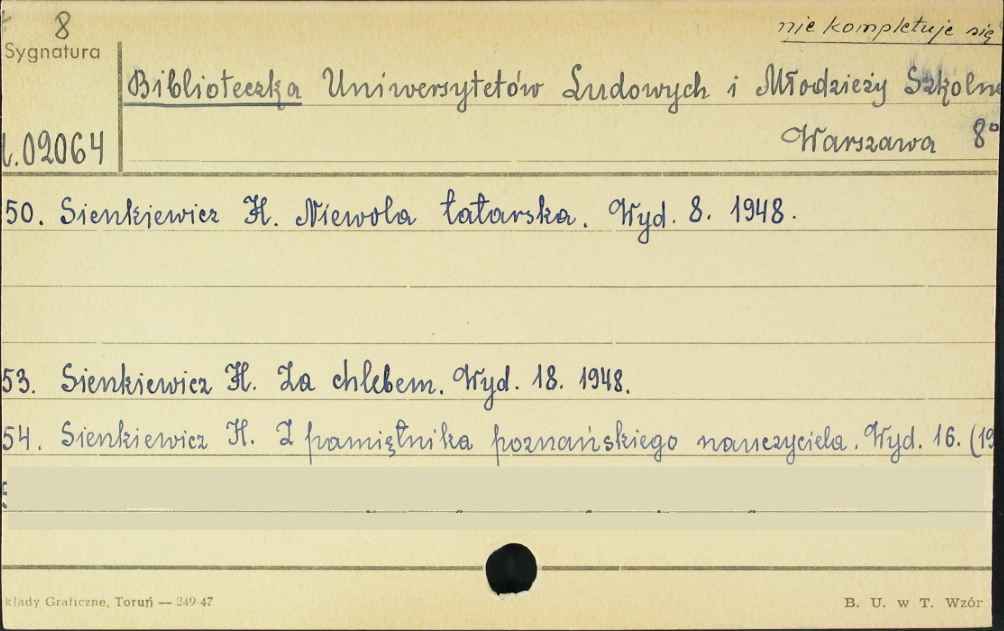 8
nie kompletuje się
Sygnatura
Biblioteczka Uniwersytetów Ludowych i Młodzieży Szkolne
Warszawa 8°
.02064
50. Sienkiewicz H. Niewola tatarska. Wyd. 8. 1948.
53. Sienkiewicz H. Za chlebem. Wyd. 18. 1948.
54. Sienkiewicz H. Z pamiętnika poznańskiego nauczyciela. Wyd. 16. (19
kłady Graficzne, Toruń — 249-47
B. U. w T. Wzór